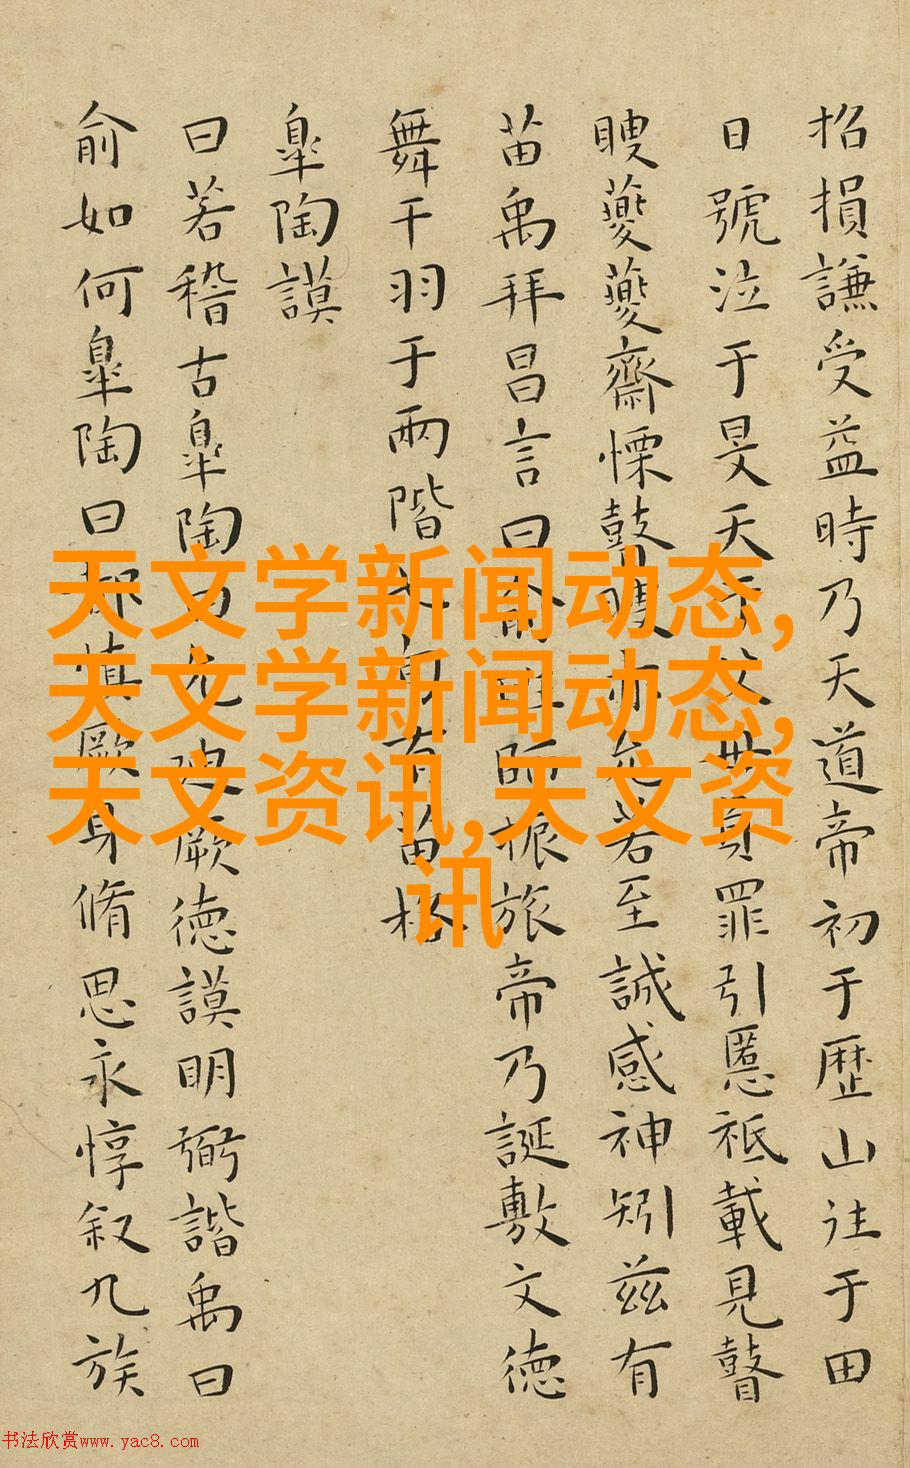 招損謙受益時乃天道帝初于歷山往于田
日號泣于旻天于父母負罪引慝祗載見瞽
瞍夔夔齋慄瞽瞍亦允若至諴感神矧茲有
苗禹拜昌言曰俞班師振旅帝乃誕敷文德
舞干羽于兩階七旬有苗格
皐陶謨
曰若稽古皐陶曰允迪厥德謨明弼諧禹曰
俞如何皐陶曰都慎厥身脩思永惇叙九族
天文学新闻动态,
天文学新闻动态,
天文资讯,天文资
讯
书法欣赏www.yac8.com